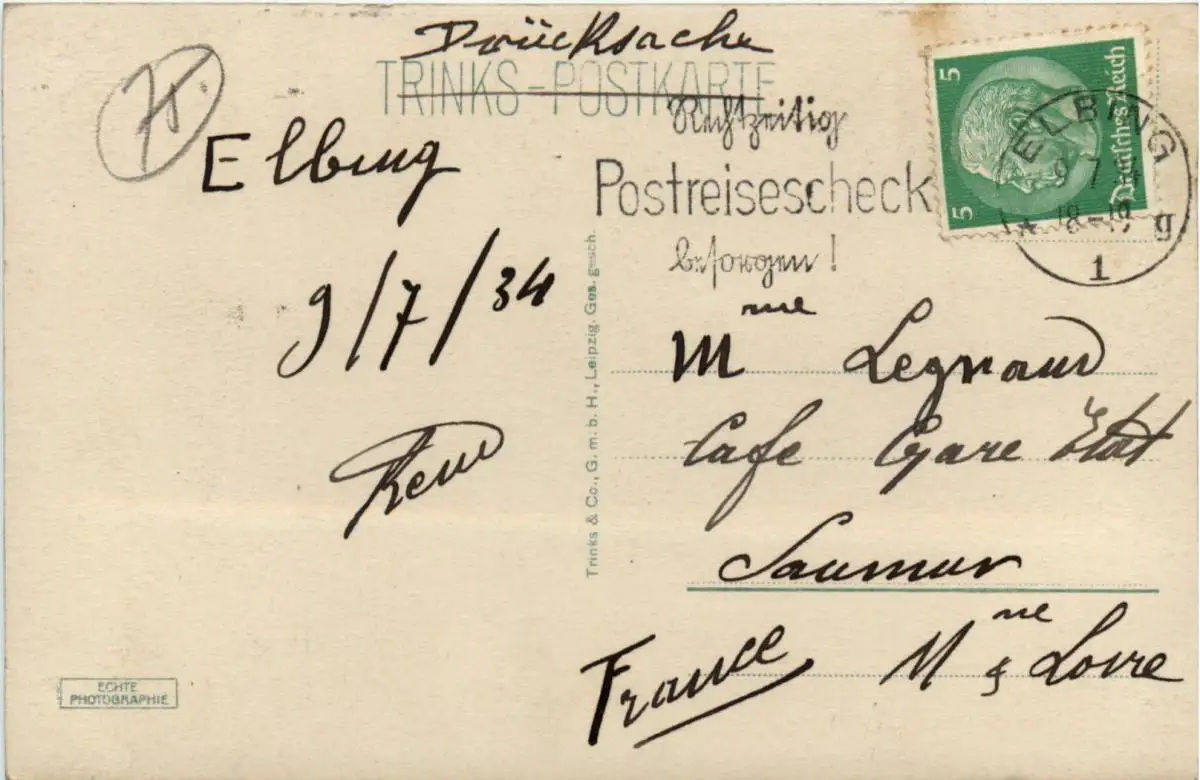 Drücksache
TRINKS-POSTKARTE
Elbing
9/7/34
Rechtzeitig
Postreisescheck
besorgen!
5 5
Deutsches Reich
ELBING
9.7.34
18-19
* 1 g
Trinks & Co., G.m.b.H., Leipzig. Ges. gesch.
Mme Legrand
Cafe Gare Etat
Saumur
Mne & Loire
France
ECHTE
PHOTOGRAPHIE